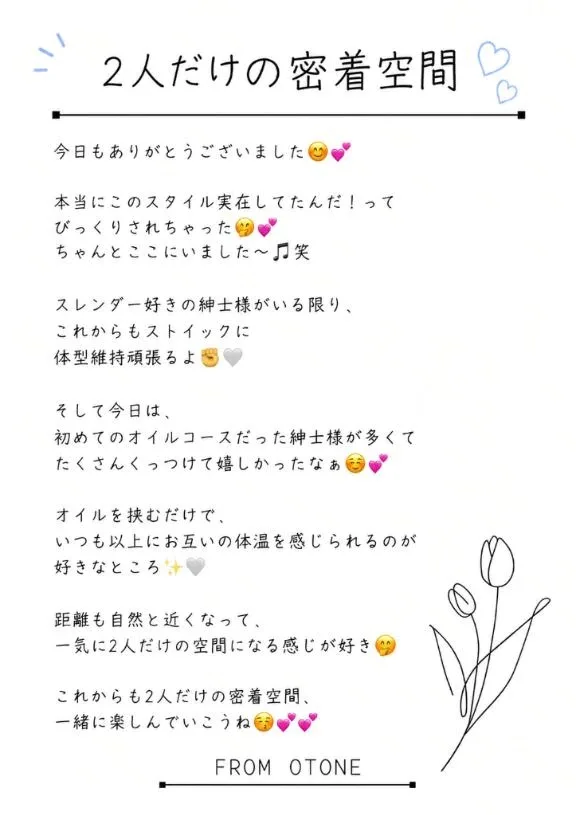 2人だけの密着空間
今日もありがとうございました😊💕
本当にこのスタイル実在してたんだ！って
びっくりされちゃった🤭💕
ちゃんとここにいました〜🎵笑
スレンダー好きの紳士様がいる限り、
これからもストイックに
体型維持頑張るよ✊🤍
そして今日は、
初めてのオイルコースだった紳士様が多くて
たくさんくっつけて嬉しかったなぁ☺️💕
オイルを挟むだけで、
いつも以上にお互いの体温を感じられるのが
好きなところ✨🤍
距離も自然と近くなって、
一気に2人だけの空間になる感じが好き🤭
これからも2人だけの密着空間、
一緒に楽しんでいこうね😚💕💕
FROM OTONE